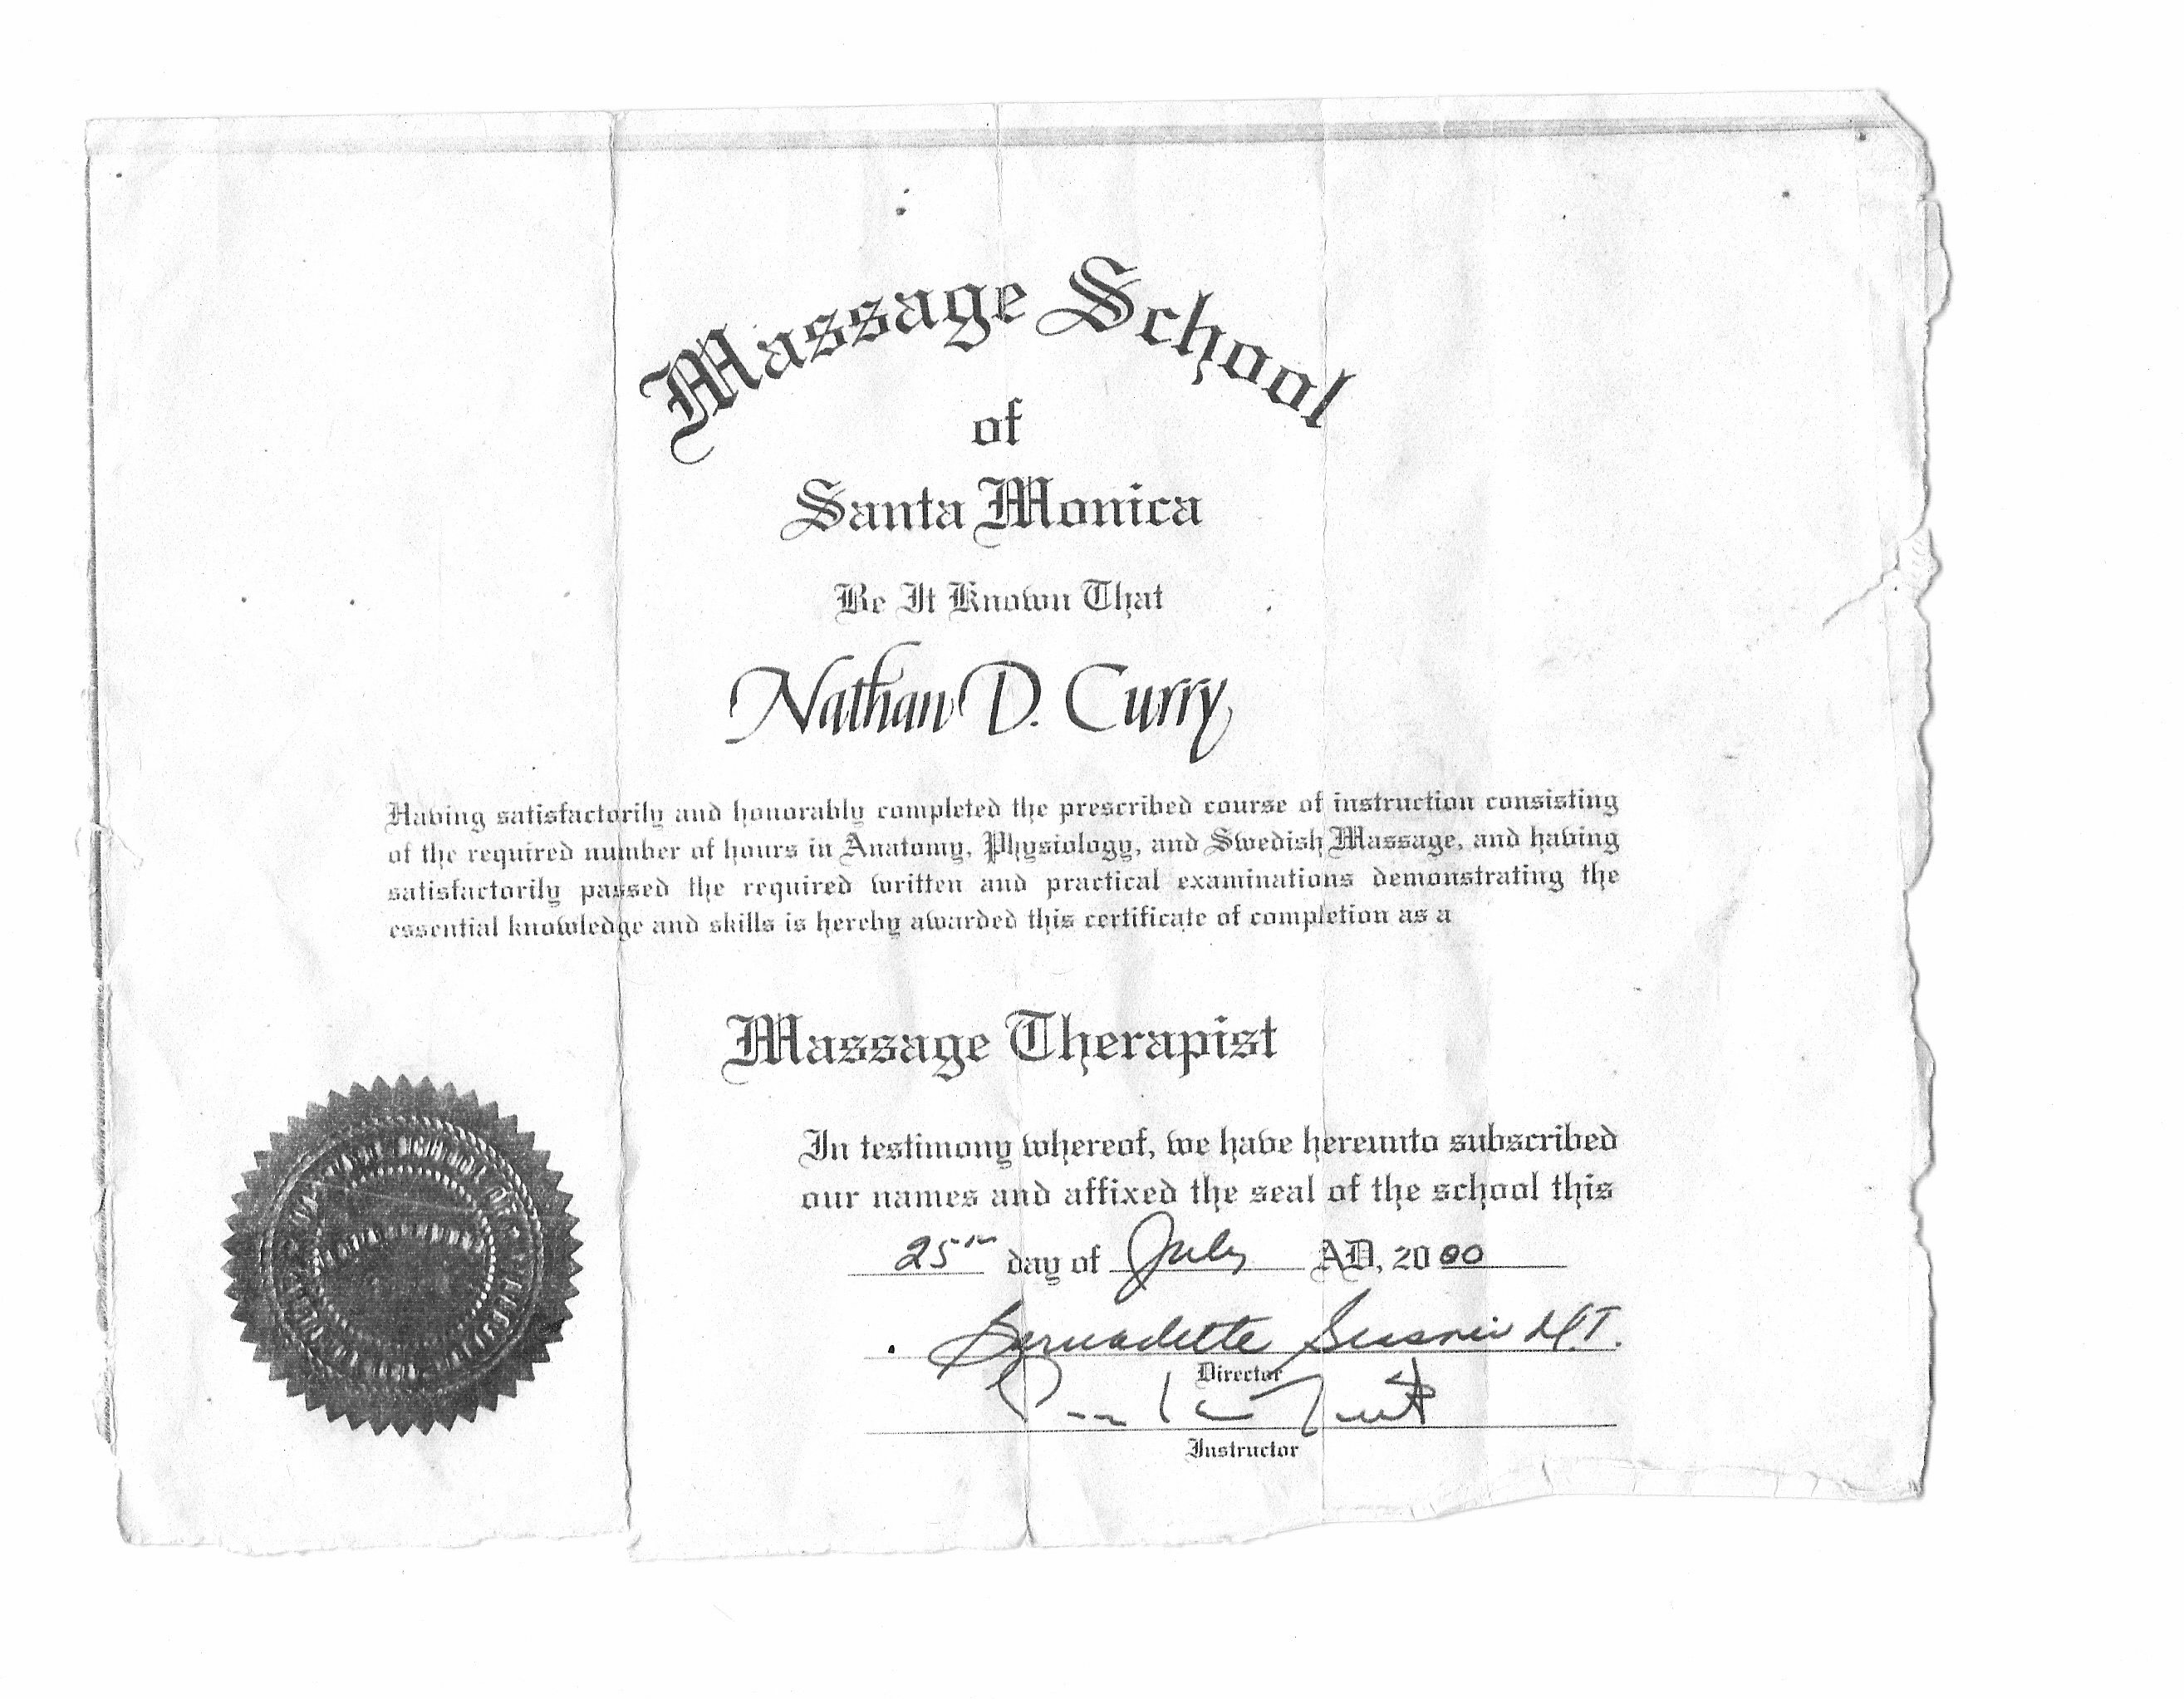 Massage School
of
Santa Monica
Be It Known That
Nathan D. Curry
Having satisfactorily and honorably completed the prescribed course of instruction consisting
of the required number of hours in Anatomy, Physiology, and Swedish Massage, and having
satisfactorily passed the required written and practical examinations demonstrating the
essential knowledge and skills is hereby awarded this certificate of completion as a
Massage Therapist
In testimony whereof, we have hereunto subscribed
our names and affixed the seal of the school this
25th day of July AD, 2000
Bernadette
Director
Instructor